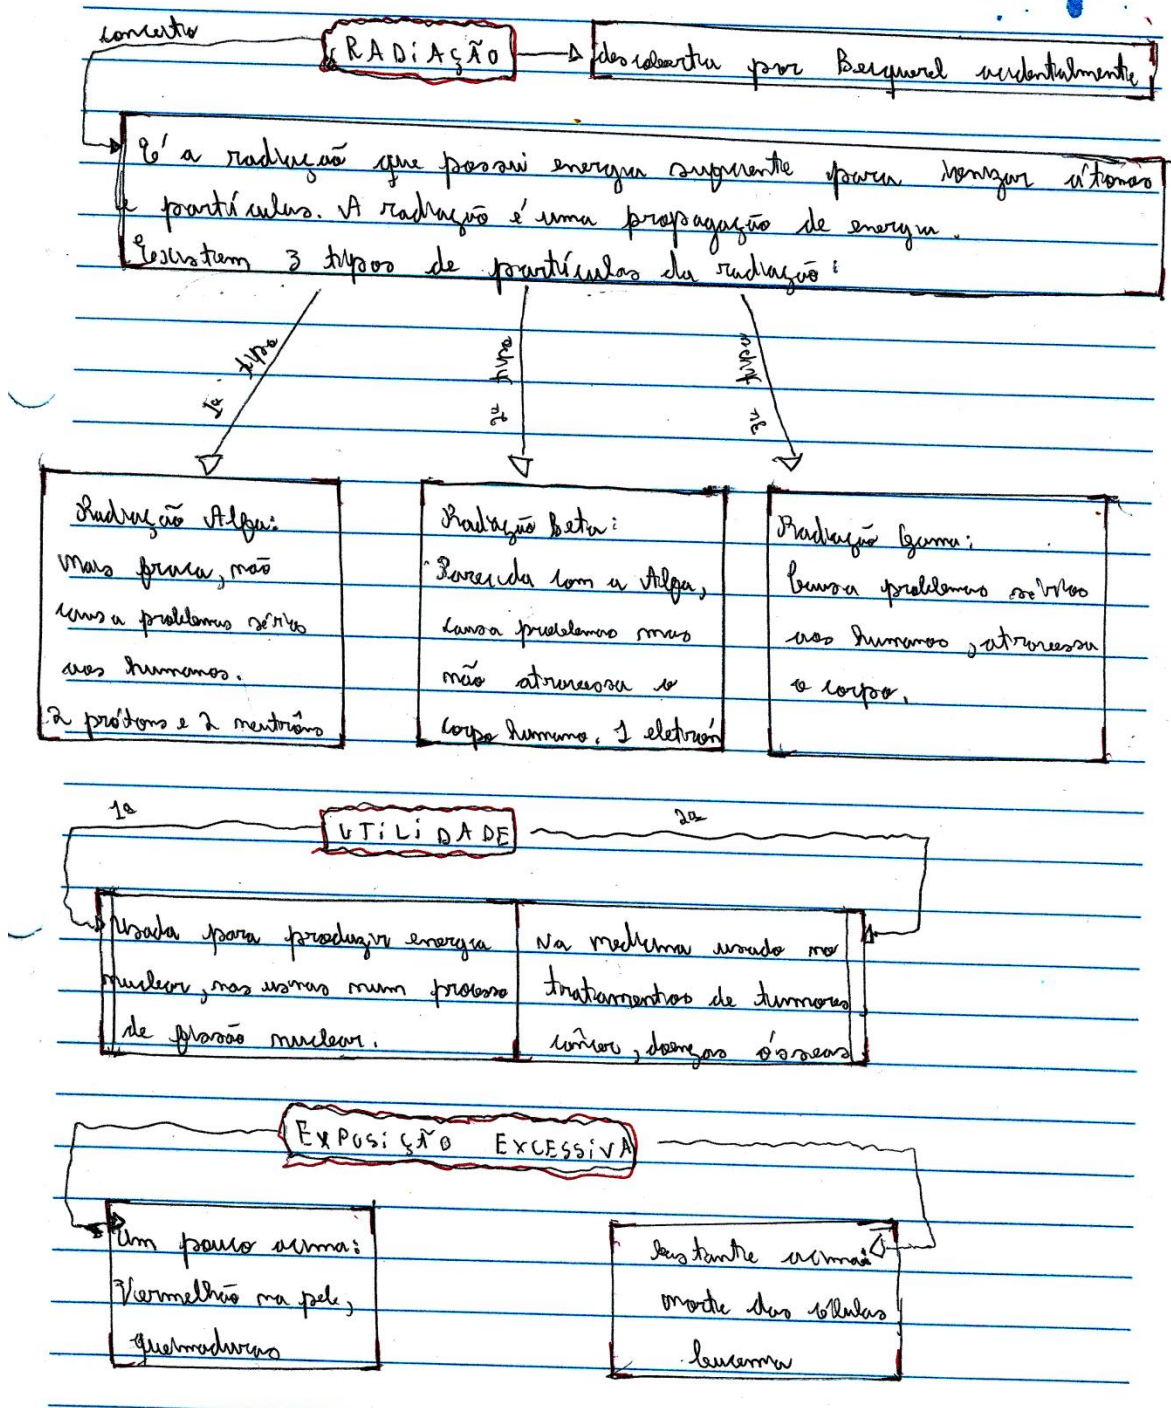 conceito
RADIAÇÃO
descoberta por Bequerel acidentalmente
É a radiação que possui energia suficiente para ionizar átomos
e partículas. A radiação é uma propagação de energia.
Existem 3 tipos de partículas da radiação:
1º tipo
2º tipo
3º tipo
Radiação Alfa:
mais fraca, não
causa problemas sérios
aos humanos.
2 prótons e 2 neutrôns
Radiação beta:
Parecida com a Alfa,
causa problemas mas
não atravessa o
corpo humano. 1 eletrón
Radiação Gama:
Causa problemas sérios
aos humanos, atravessa
o corpo.
1º
UTILIDADE
2º
Usada para produzir energia
nuclear, nas usinas num processo
de fissão nuclear.
Na medicina usado no
tratamentos de tumores
câncer, doenças ósseas
EXPOSIÇÃO EXCESSIVA
Um pouco acima:
Vermelhão na pele,
queimaduras
bastante acima:
morte das células
leucemia